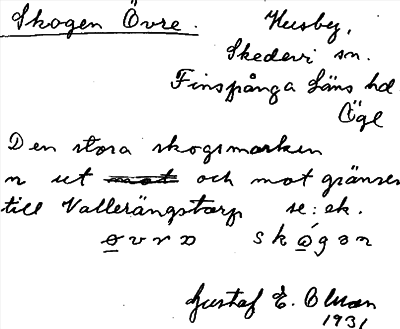 Skogen Övre. Husby,
Skedevi sn.
Finspånga läns hd
Ögl
Den stora skogsmarken
n ut och mot gränsen
till Vallerängstorp se: ek.
øvrə skǫ́gən
Gustaf E. Olsson
1931